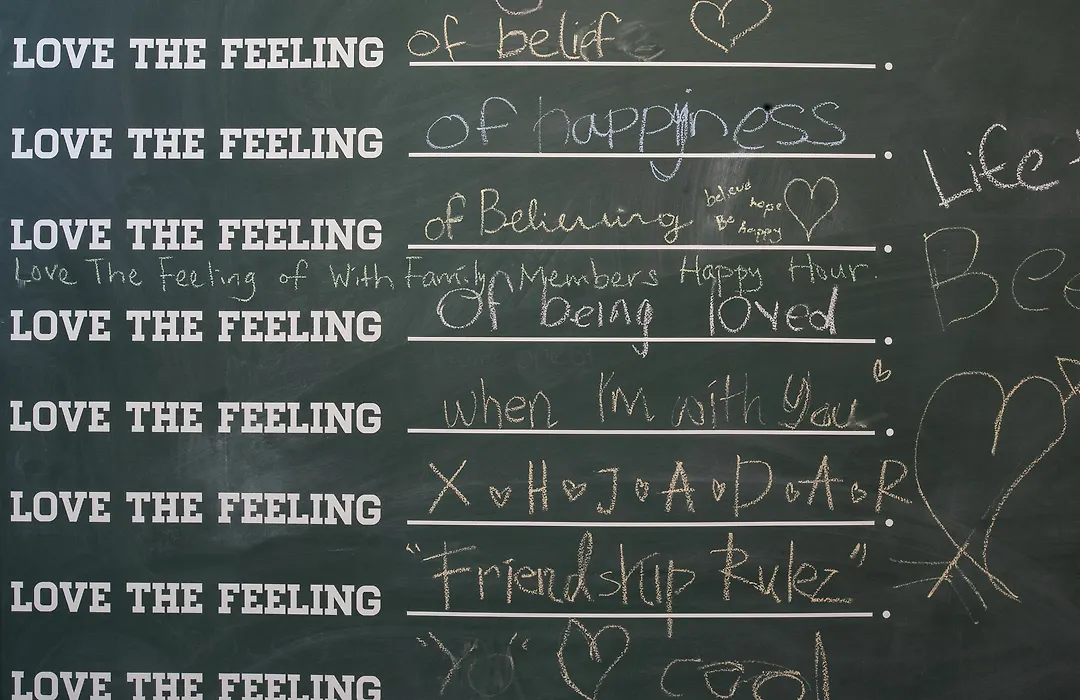 LOVE THE FEELING of belief ♡.
LOVE THE FEELING of happiness.
Life
LOVE THE FEELING of Believing believe hope Be happy ♡.
Love The Feeling of With Family Members Happy Hour.
Bee
LOVE THE FEELING Of being loved.
LOVE THE FEELING when I'm with You.
LOVE THE FEELING X ♡ H ♡ J ♡ A ♡ D ♡ A ♡ R.
LOVE THE FEELING "Friendship Rulez".
LOVE THE FEELING "yo" ♡ cool